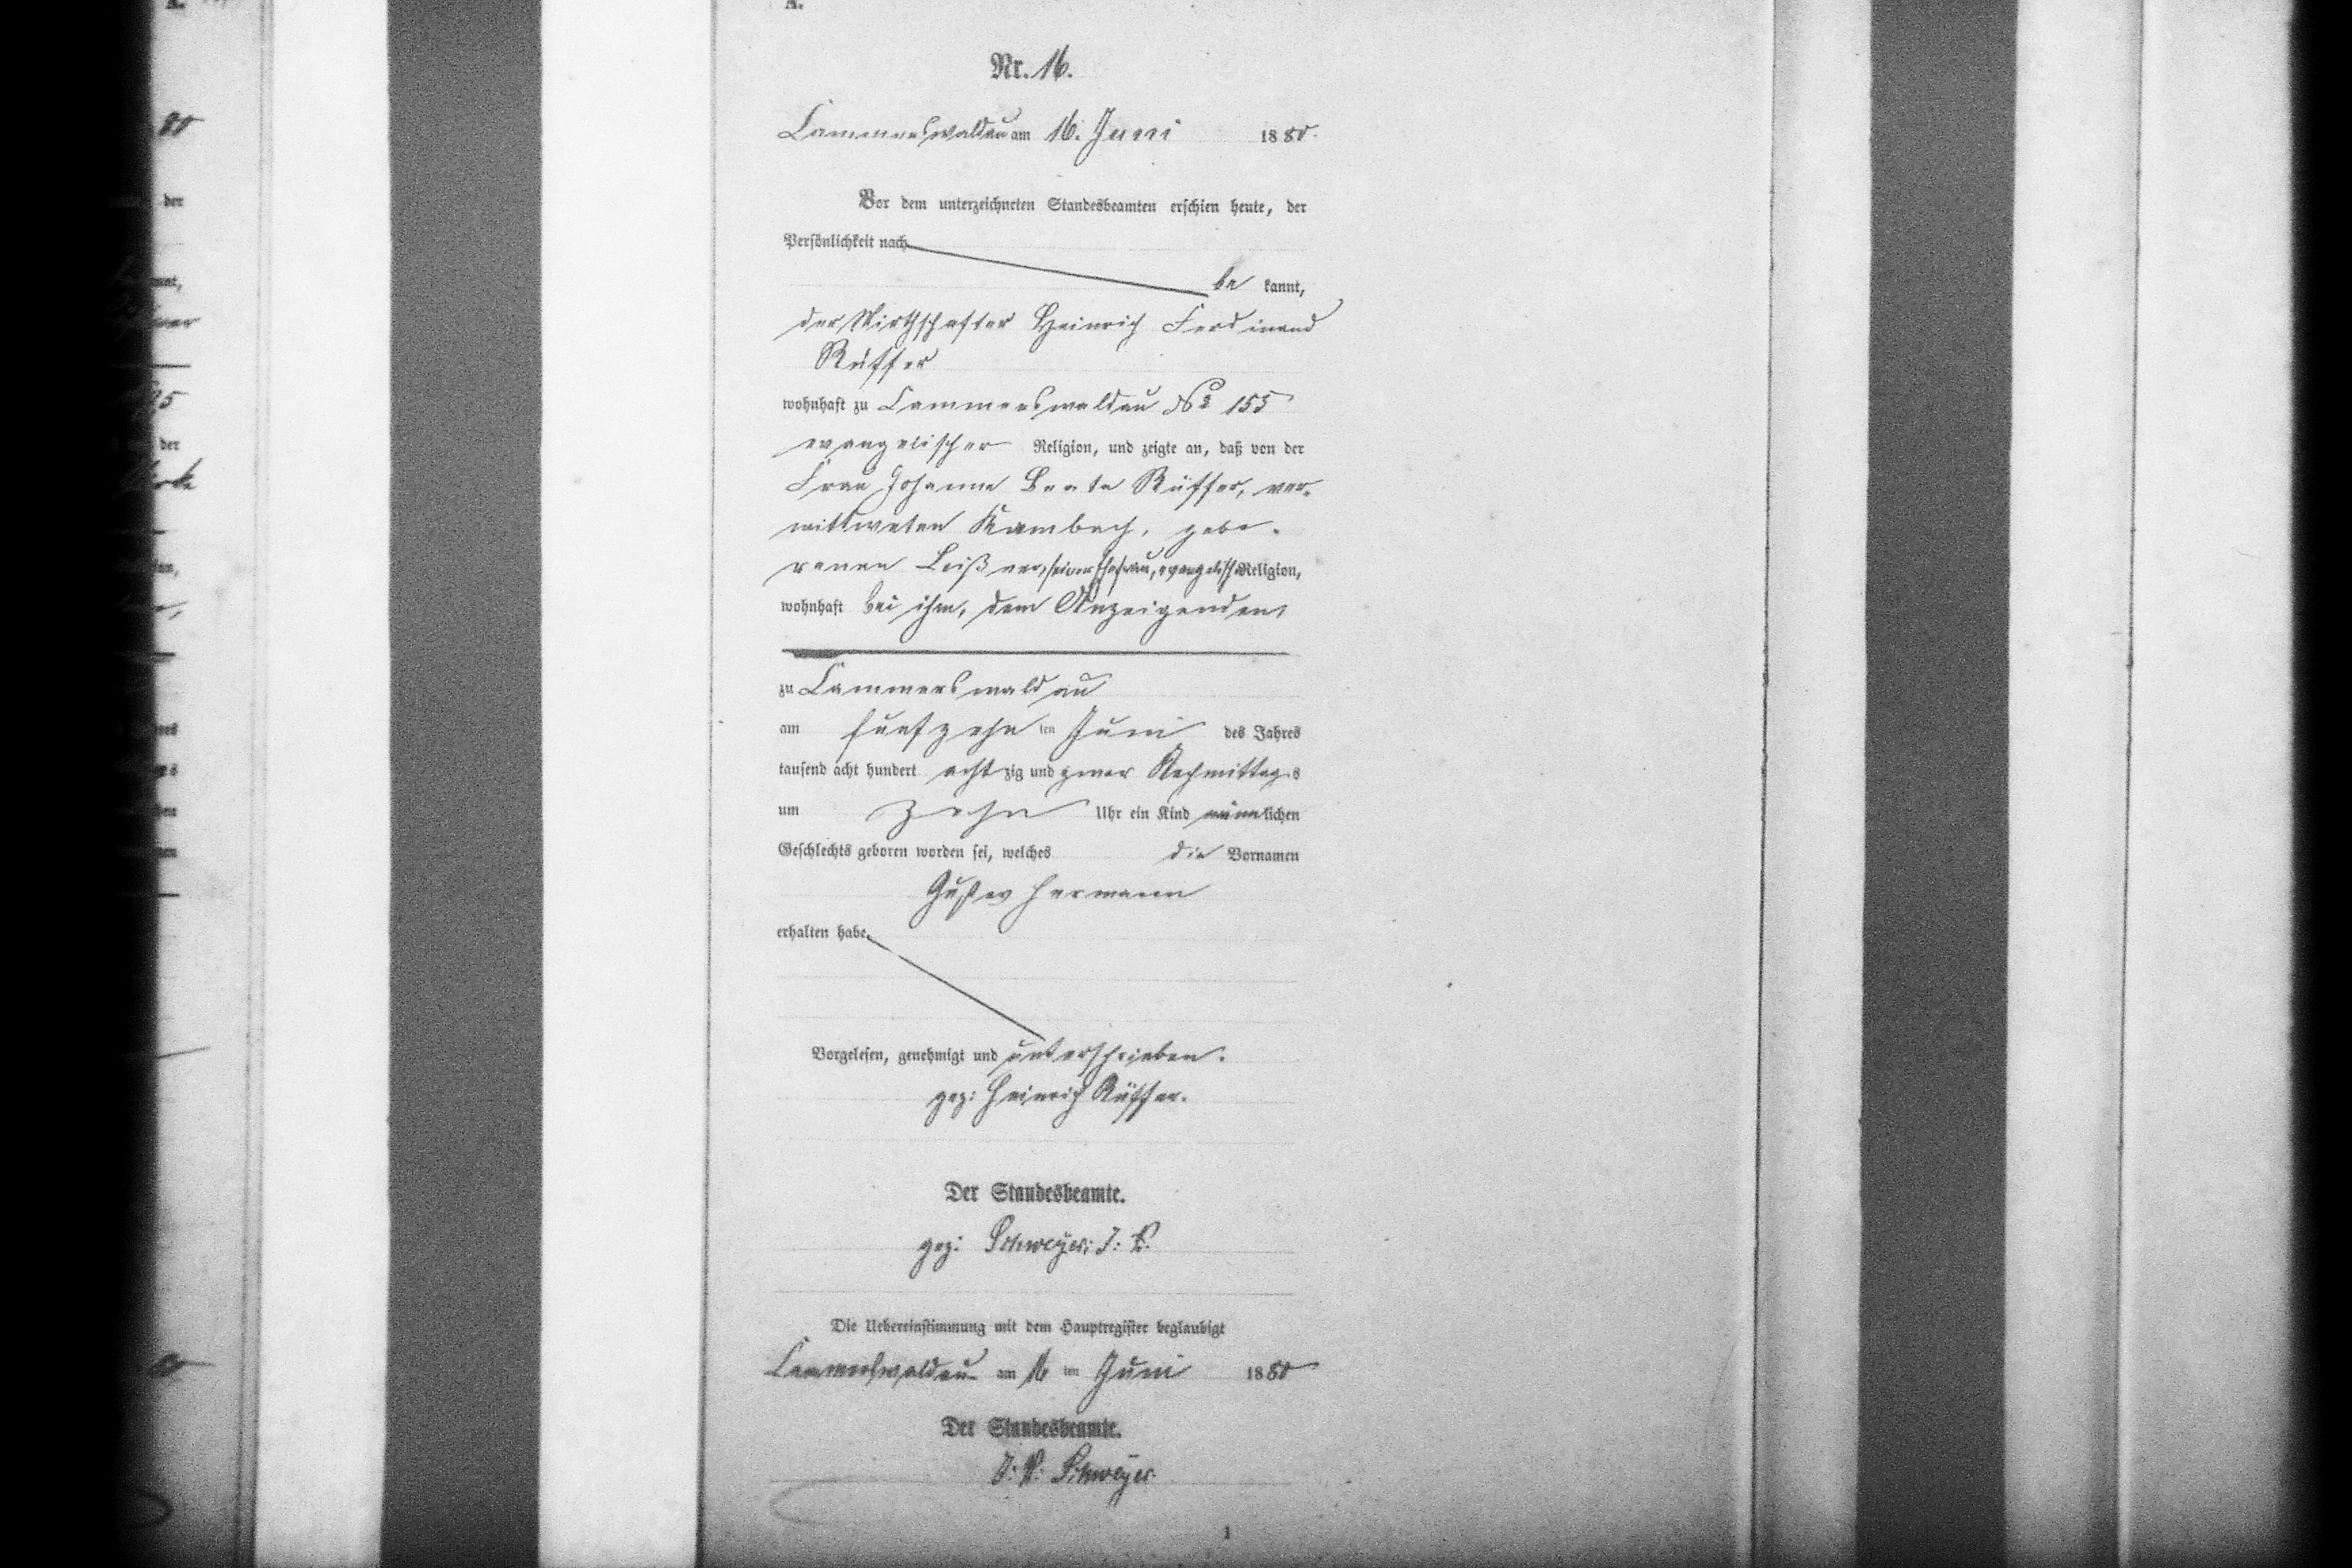 A.
Nr. 16.
Cammerswaldau am 16. Juni 1880.
Vor dem unterzeichneten Standesbeamten erschien heute, der
Persönlichkeit nach
be kannt,
der Wirthschafter Heinrich Ferdinand
Rüffer
wohnhaft zu Cammerswaldau No 155
evangelischer Religion, und zeigte an, daß von der
Frau Johanne Beate Rüffer, ver-
wittweten Kambach, gebo-
renen Leißner, seiner Ehefrau, evangelischer Religion,
wohnhaft bei ihm, dem Anzeigenden,
zu Cammerswaldau
am fünfzehn ten Juni des Jahres
tausend acht hundert acht zig und zwar Nachmittags
um zehn Uhr ein Kind männlichen
Geschlechts geboren worden sei, welches die Vornamen
Gustav Hermann
erhalten habe.
Vorgelesen, genehmigt und unterschrieben.
gez: Heinrich Rüffer.
Der Standesbeamte.
gez: Schweyer; I. V.
Die Uebereinstimmung mit dem Hauptregister beglaubigt
Cammerswaldau am 16 ten Juni 1880
Der Standesbeamte.
I: V: Schweyer.
1